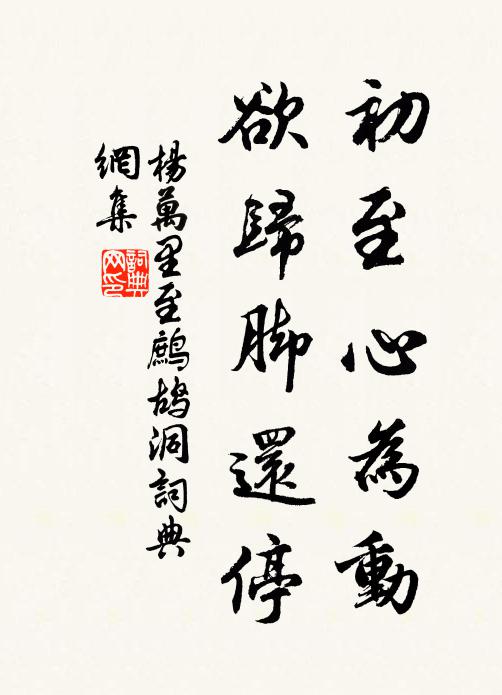 初至心為動
欲歸脚還停
楊萬里至鷓鴣洞詞典
網集
詞典
网印